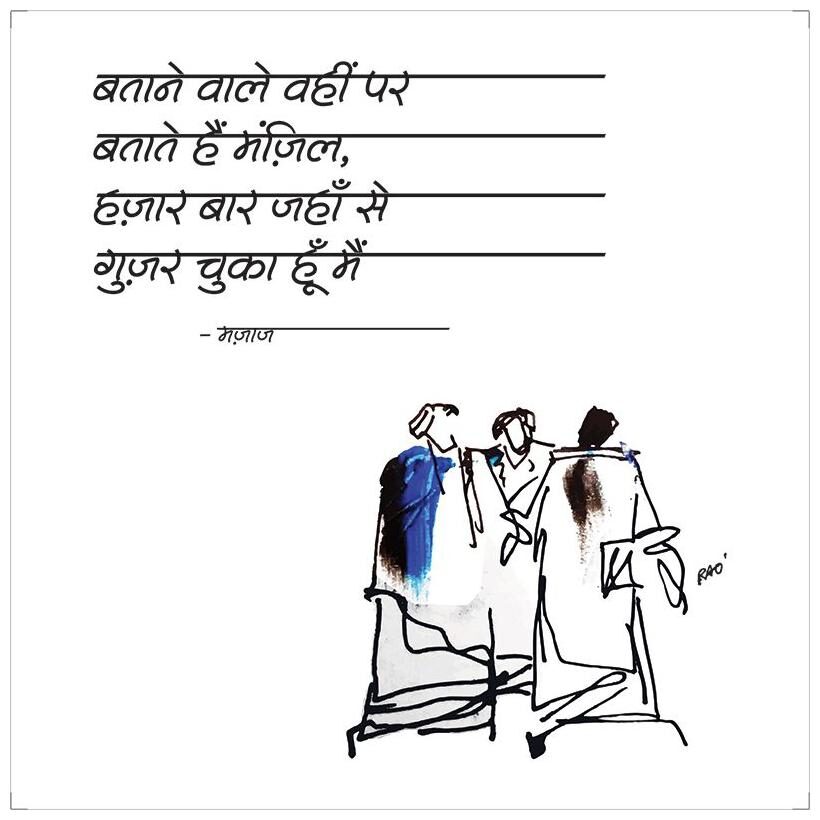 बताने वाले वहीं पर
बताते हैं मंज़िल,
हज़ार बार जहाँ से
गुज़र चुका हूँ मैं
– मजाज़
RAO'